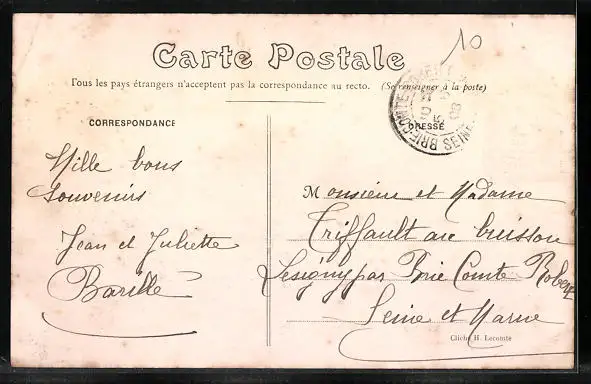 10
Carte Postale
Tous les pays étrangers n'acceptent pas la correspondance au recto. (Se renseigner à la poste)
CORRESPONDANCE
BRIE-COMTE-ROBERT
SEINE
08
DRESSE
Mille bons
Souvenirs
Jean et Juliette
Monsieur et Madame
Triffault au buisson
Lesigny par Brie Comte Robert
Seine et Marne
Cliché H. Lecomte